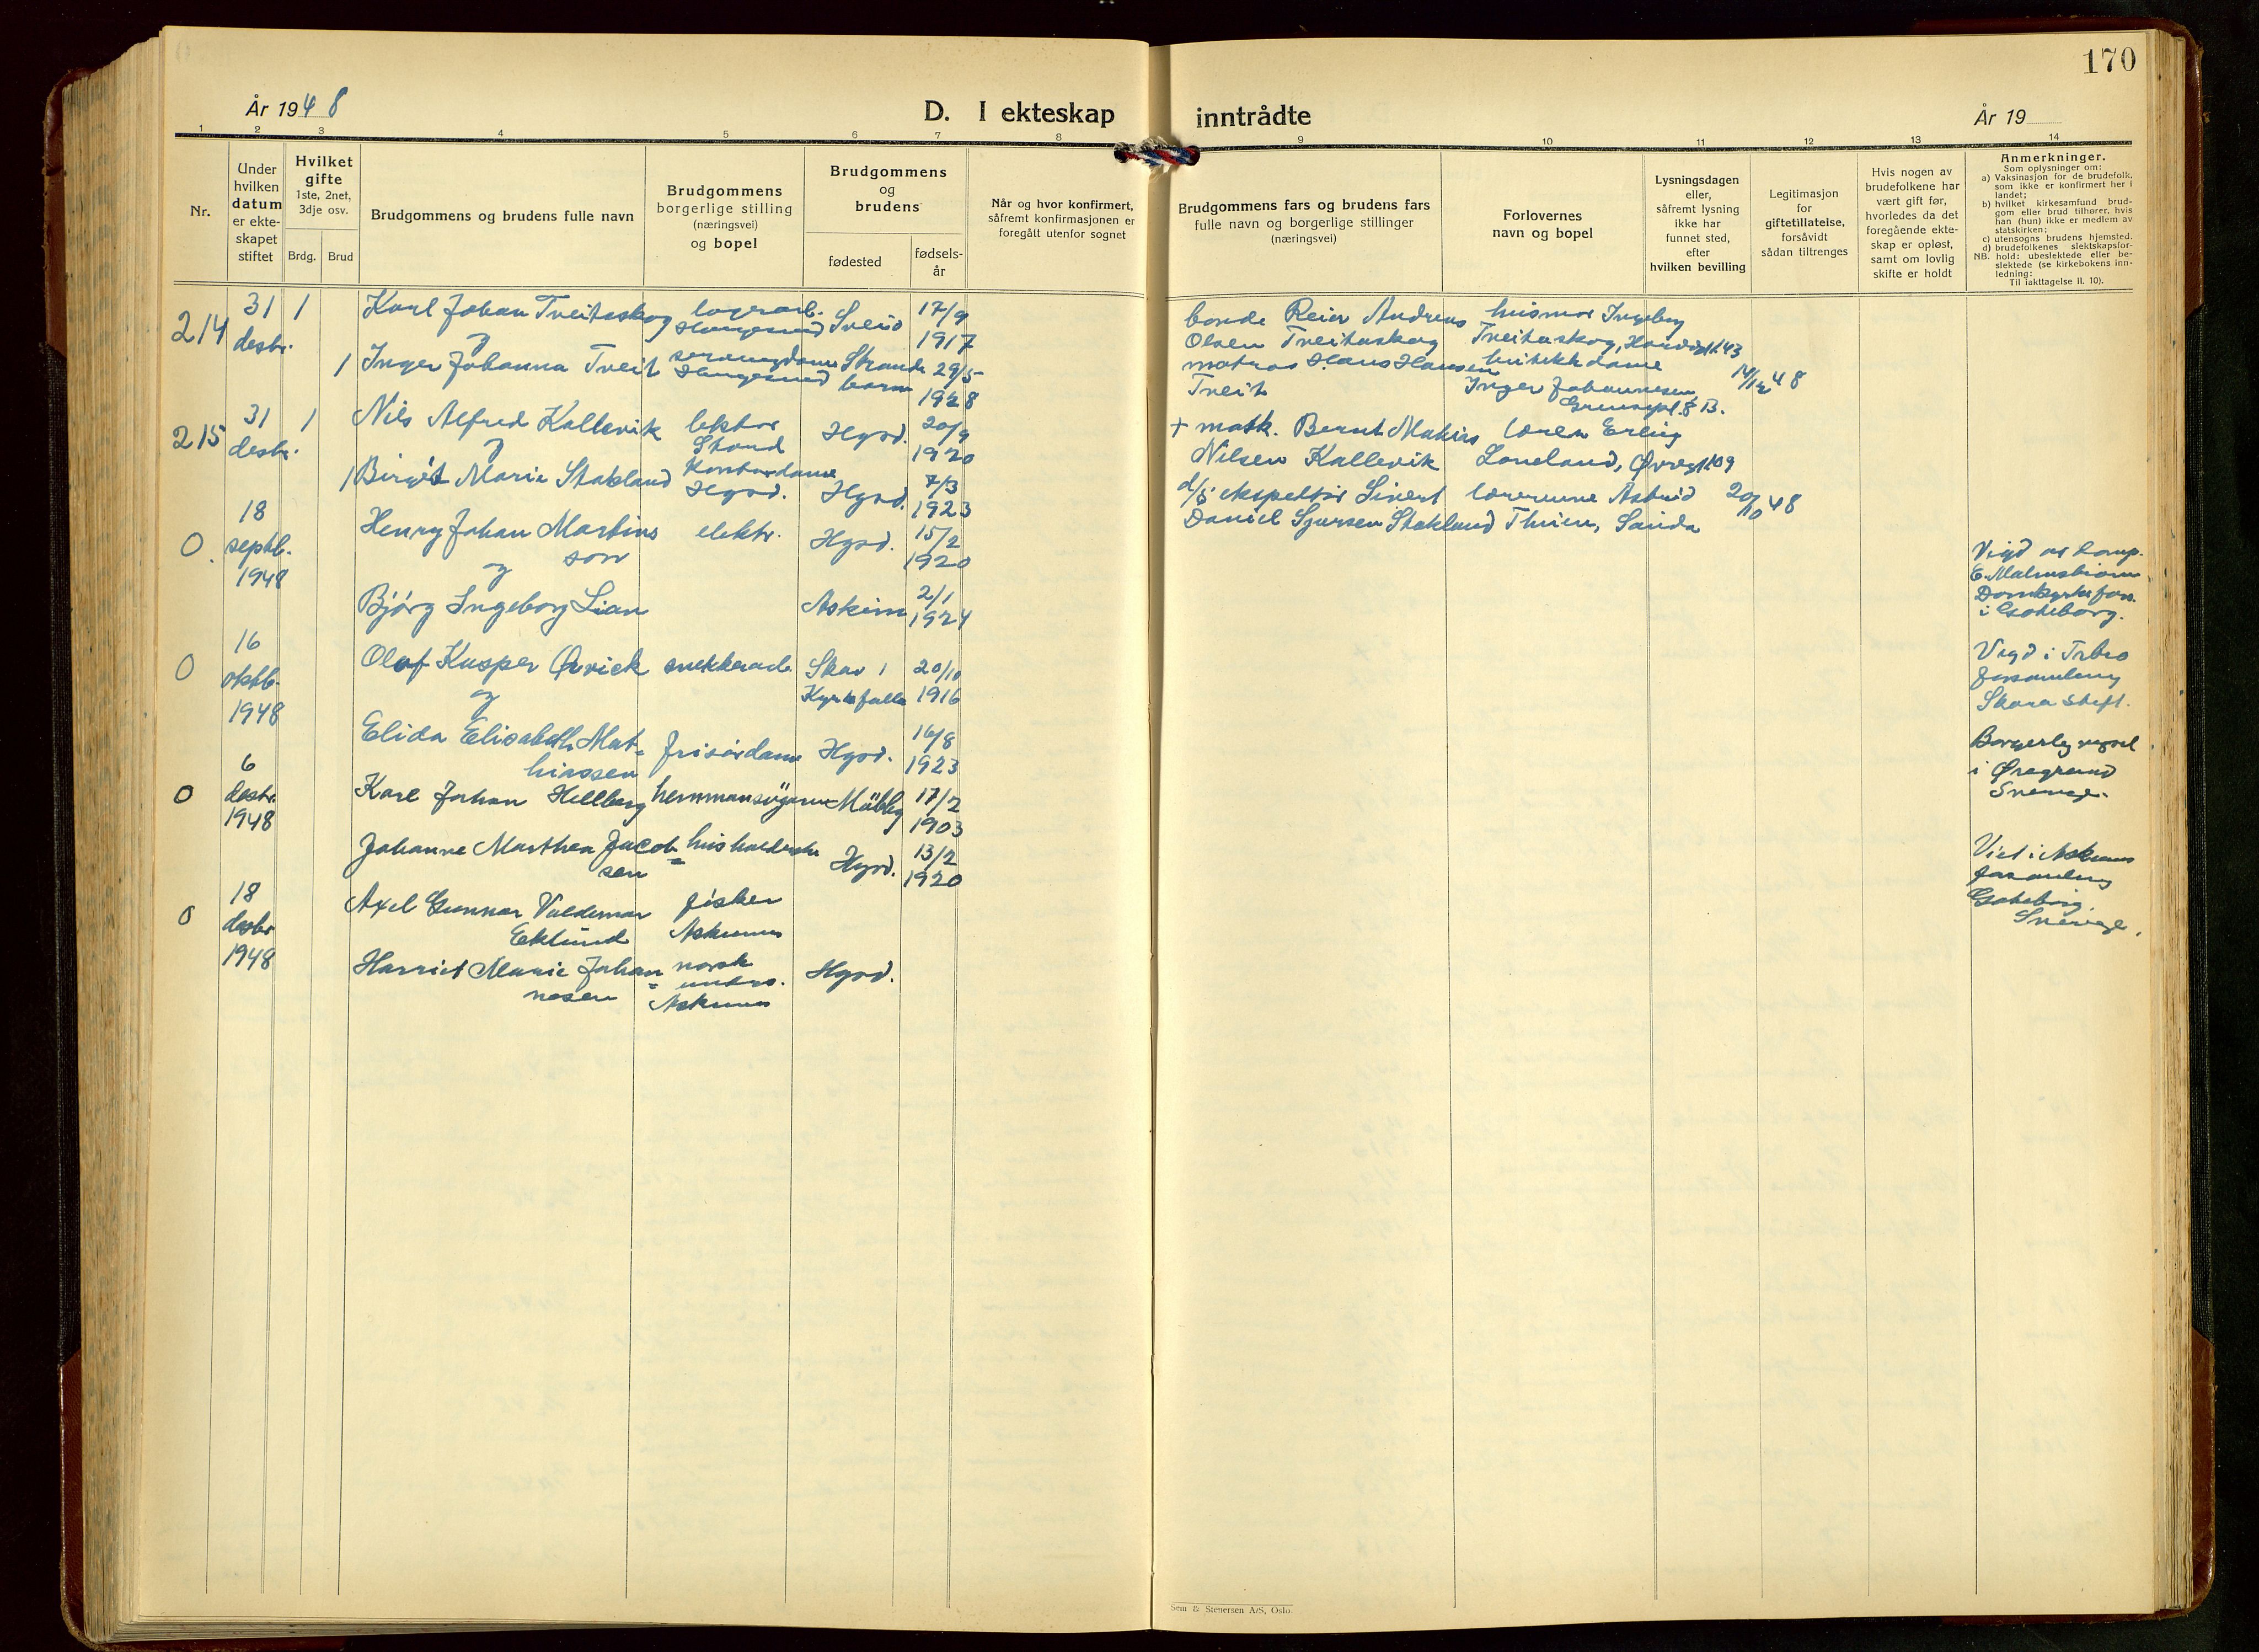 170
År 1948
D. I ekteskap inntrådte
År 19
1 2 3 4 5 6 7 8 9 10 11 12 13 14
Nr.
Under
hvilken
datum
er ekte-
skapet
stiftet
Hvilket
gifte
1ste, 2net,
3dje osv.
Brdg. Brud
Brudgommens og brudens fulle navn
Brudgommens
borgerlige stilling
(næringsvei)
og bopel
Brudgommens
og
brudens
fødested
fødsels-
år
Når og hvor konfirmert,
såfremt konfirmasjonen er
foregått utenfor sognet
Brudgommens fars og brudens fars
fulle navn og borgerlige stillinger
(næringsvei)
Forlovernes
navn og bopel
Lysningsdagen
eller,
såfremt lysning
ikke har
funnet sted,
efter
hvilken bevilling
Legitimasjon
for
giftetillatelse,
forsåvidt
sådan tiltrenges
Hvis nogen av
brudefolkene har
vært gift før,
hvorledes da det
foregående ekte-
skap er opløst,
samt om lovlig
skifte er holdt
Anmerkninger.
Som oplysninger om:
a) Vaksinasjon for de brudefolk.
som ikke er konfirmert her i
landet;
b) hvilket kirkesamfund brud-
gom eller brud tilhører, hvis
han (hun) ikke er medlem av
statskirken;
c) utensogns brudens hjemsted.
d) brudefolkenes slektskapsfor-
NB. hold: ubeslektede eller be-
slektede (se kirkebokens inn-
ledning:
Til iakttagelse II. 10).
214
31 1
desbr.
Karl Johan Tveitaskog
og
lagerarb.
Haugesund
Sveio
17/9
1917
bonde Reier Andreas
Olsen Tveitaskog
husmor Ingeborg
Tveitaskog,
1 Inger Johanna Tveit
Haugesund
Strande
barm
29/5
1928
matros Hans Hansen
Tveit
butikkdame
Inger Johannesen
14/12 48
215
31 1
desbr.
Nils Alfred Kallevik
og
lektor
Stord
Hgsd.
20/9
1920
+ mask. Bernt Matias
Nilsen Kallevik
lærer Erling
1 Birgit Marie Stakland
Kontordame
Hgsd.
Hgsd.
7/3
1923
d/s ekspeditør Sivert
Daniel Sjursen Stakland
lærerinne Astrid
20/10 48
0
18
septb.
1948
Henry Johan Martins
son
og
elektr.
Hgsd.
15/2
1920
Bjørg Ingeborg Lian
Askim
2/1
1924
Vigd av komp.
E. Malmstrøm
Domkyrkofors.
i Gøteborg.
0
16
oktb.
1948
Olof Kasper Qvick
og
snekkerarb.
20/10
1916
Elida Elisabeth Mat=
hiassen
frisørdame
Hgsd.
16/8
1923
Vigd i
forsamling
Skara stift.
0
6
desbr.
1948
Karl Johan Hellberg
hemmansägare
17/2
1903
Johanne Marthea Jacob=
sen
husholderske
Hgsd.
13/2
1920
Borgerlig vigsel
i Øregrund
Sverige.
0
18
desbr
1948
Axel Gunnar Valdemar
Eklund
fisker
Askum
Harriet Marie Johan=
nesen
norsk
unders.
Hgsd.
Viet i Askum
forsamling
Gøteborg.
Sverige.
Sem & Stenersen A/S, Oslo.